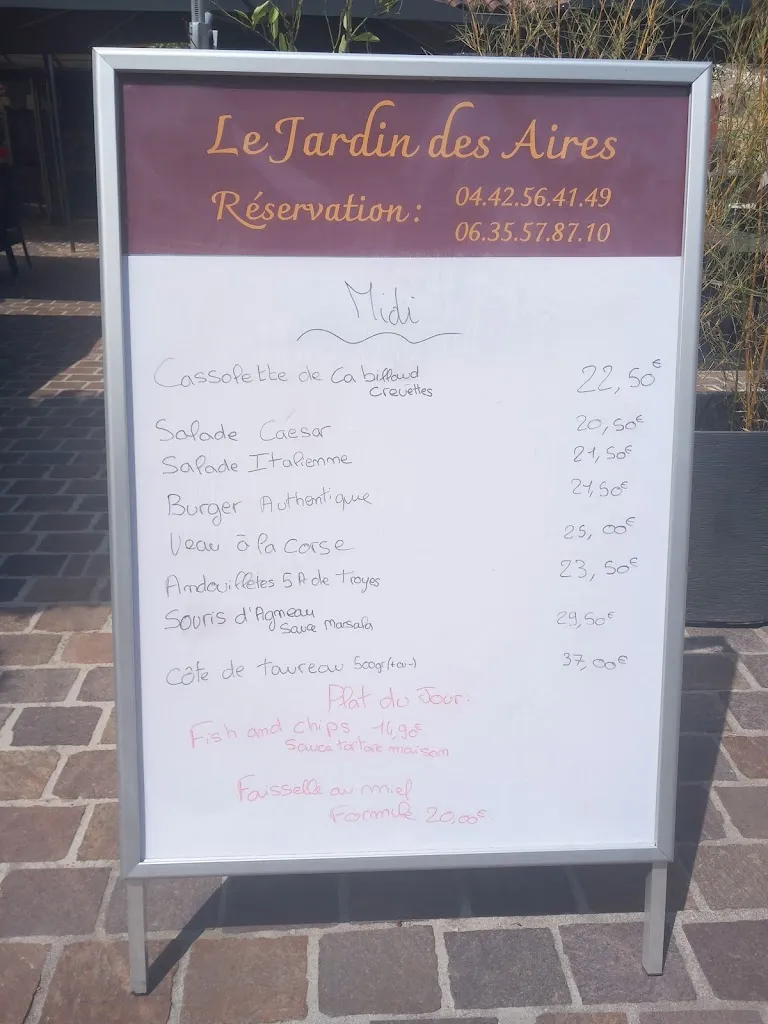 Le Jardin des Aires
Réservation : 04.42.56.41.49
06.35.57.87.10
Midi
Cassolette de Cabillaud 22,50€
Crevettes
Salade Caesar 20,50€
Salade Italienne 21,50€
Burger Authentique 21,50€
Veau à la Corse 25,00€
Andouillètes 5A de Troyes 23,50€
Souris d'Agneau 29,50€
Sauce Marsala
Côte de taureau 500gr(+ou-) 37,00€
Plat du Jour:
Fish and chips 14,90€
Sauce tartare maison
Faisselle au miel
Formule 20,00€